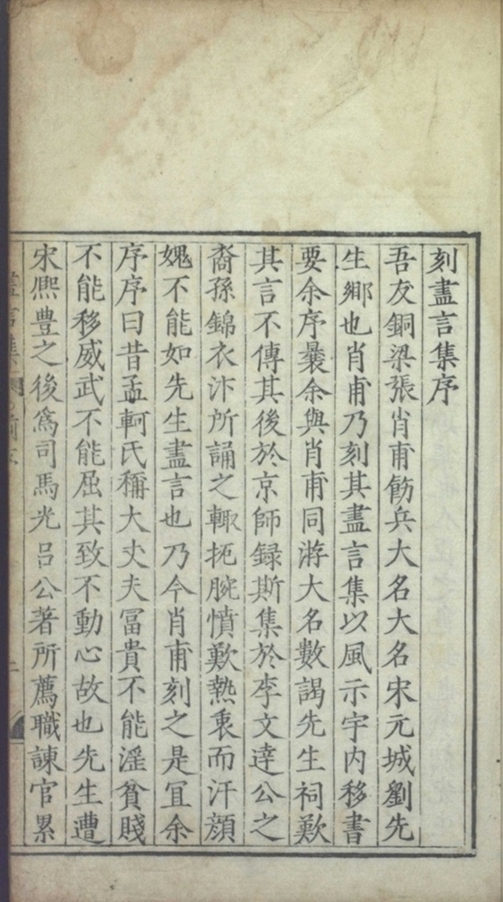 刻盡言集序
吾友銅梁張肖甫飭兵大名大名宋元城劉先
生鄉也肖甫乃刻其盡言集以風示宇内移書
要余序曩余與肖甫同游大名數謁先生祠歎
其言不傳其後於京師録斯集於李文達公之
裔孫錦衣汴所誦之輙扼腕憤歎熱衷而汗顔
媿不能如先生盡言也乃今肖甫刻之是宜余
序序曰昔孟軻氏稱大丈夫冨貴不能滛貧賤
不能移威武不能屈其致不動心故也先生遭
宋熈豊之後爲司馬光吕公著所薦職諫官累